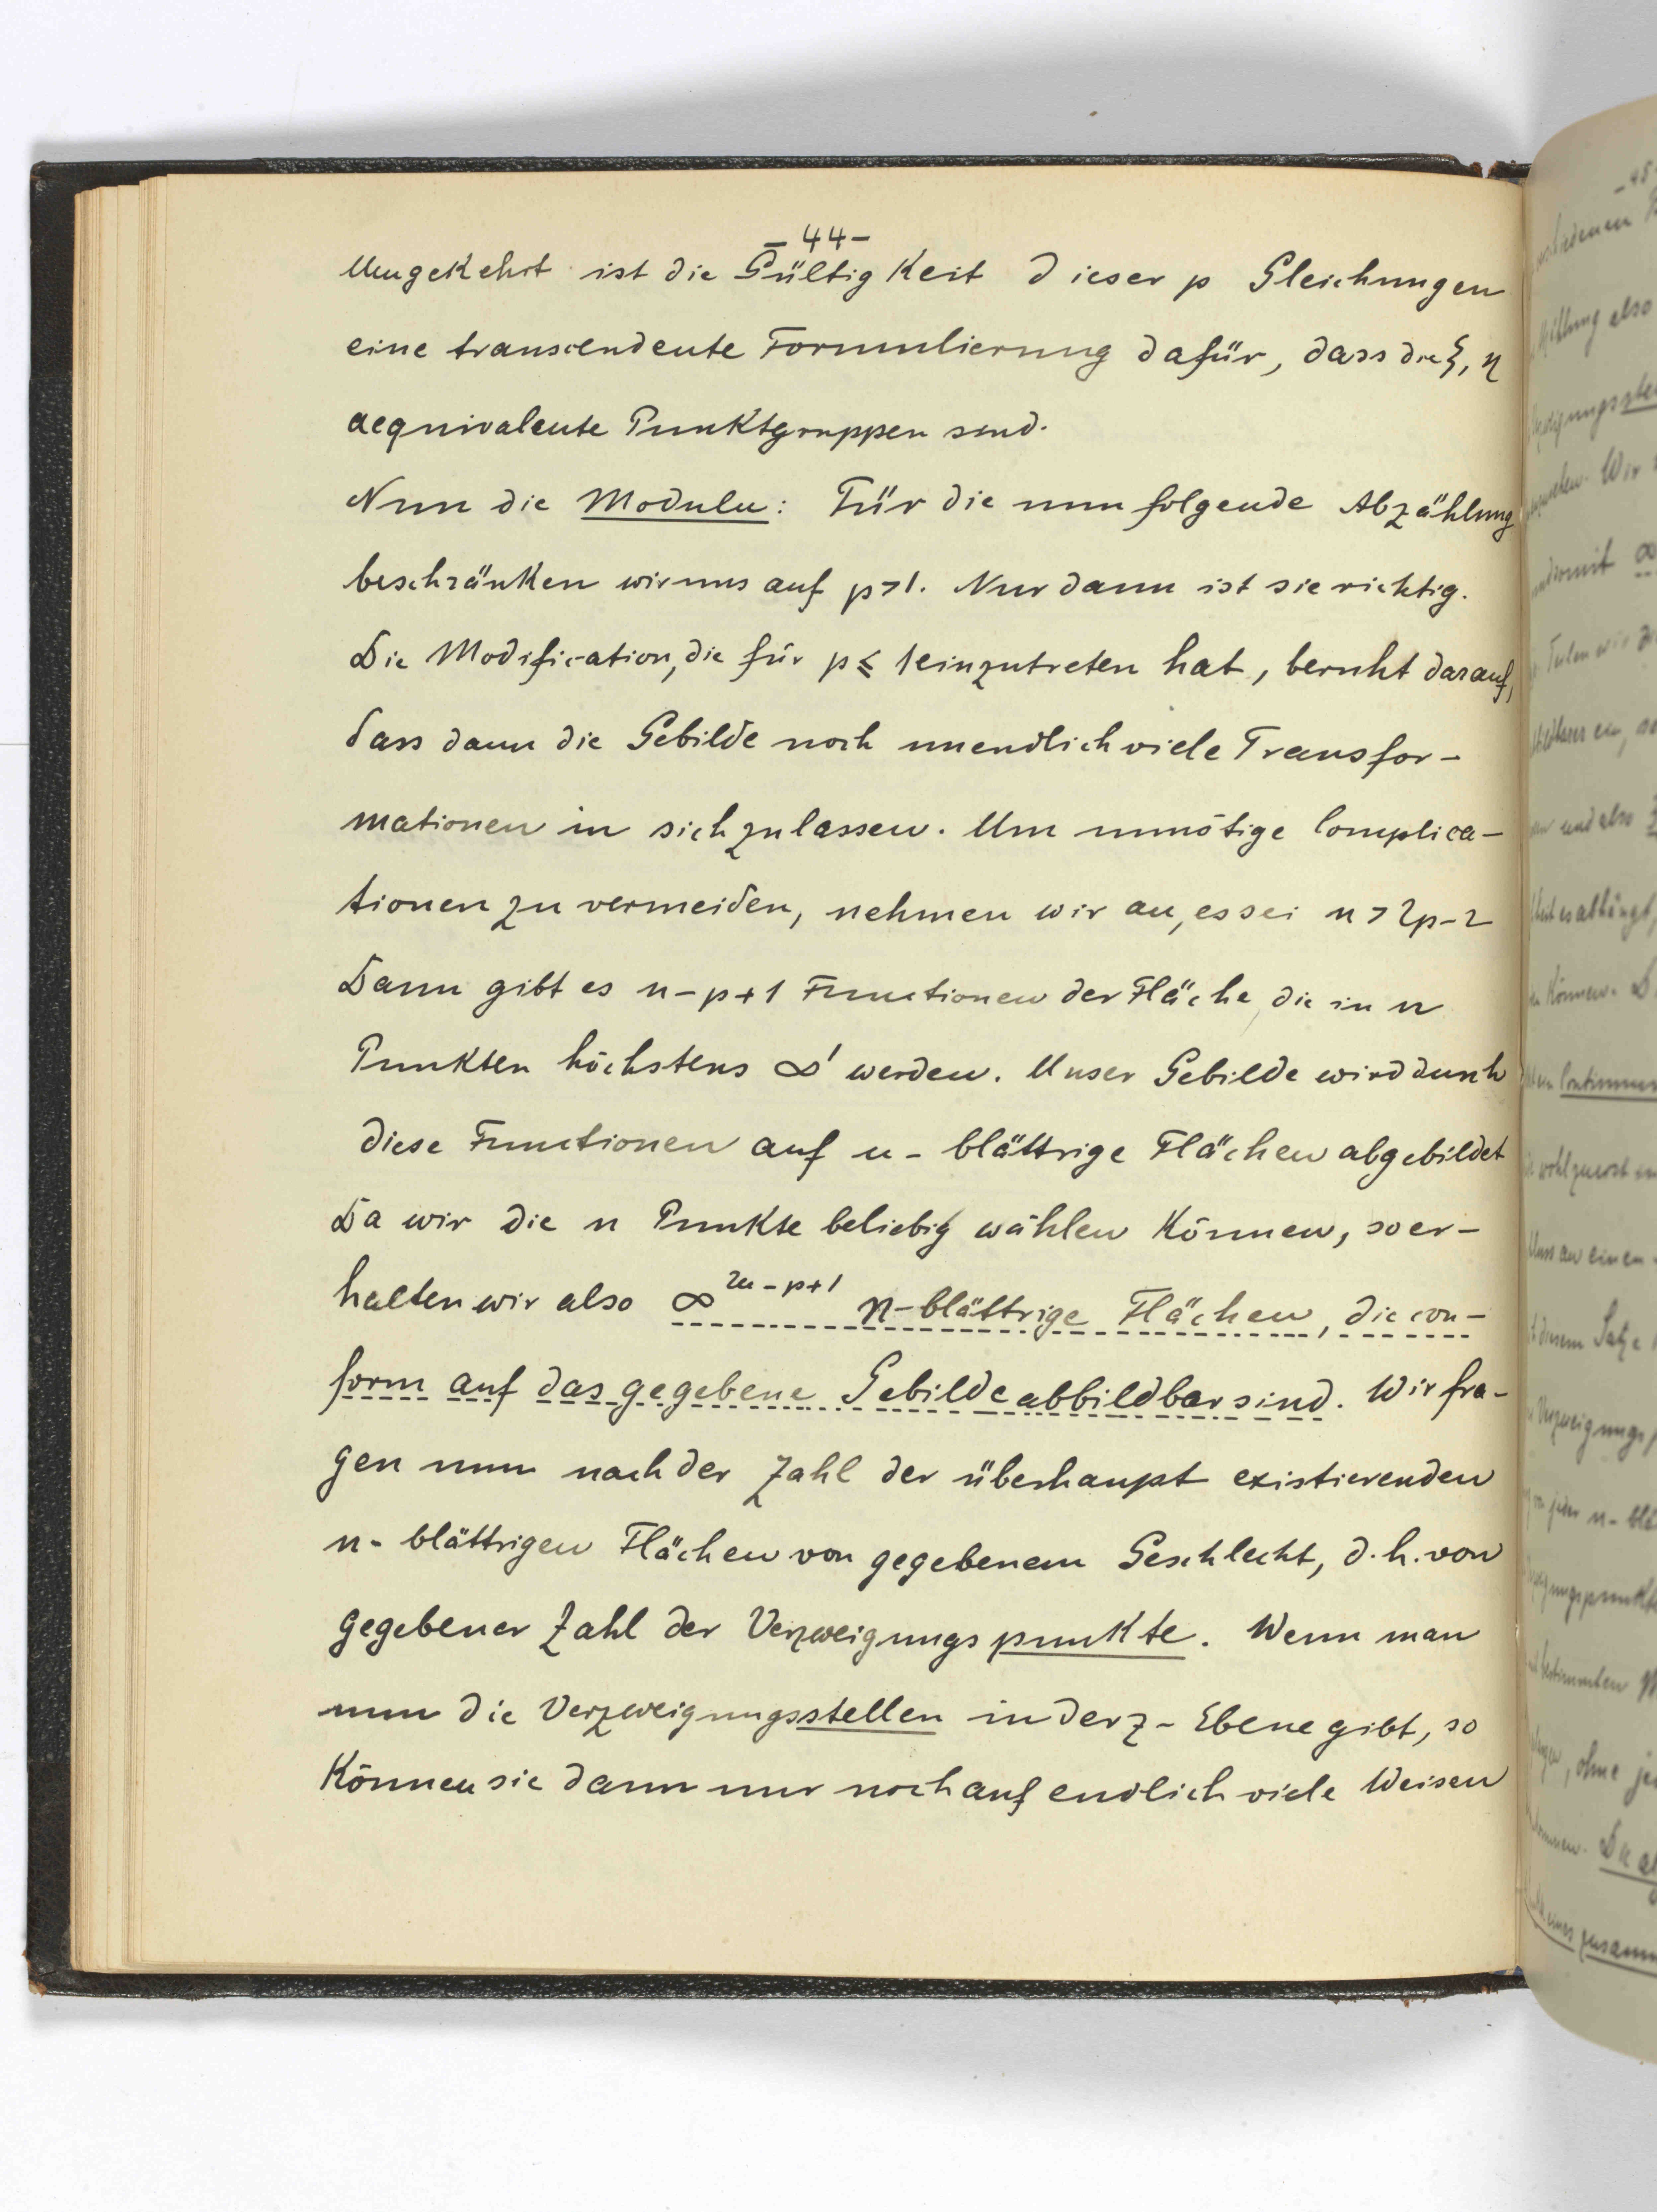 - 44 -
Umgekehrt ist die Gültigkeit dieser p Gleichungen
eine transcendente Formulierung dafür, dass die ξ, η
aequivalente Punktgruppen sind.
Nun die Moduln: Für die nun folgende Abzählung
beschränken wir uns auf p>1. Nur dann ist sie richtig.
Die Modification, die für p ≤ 1 einzutreten hat, beruht darauf,
dass dann die Gebilde noch unendlich viele Transfor-
mationen in sich zulassen. Um unnötige Complica-
tionen zu vermeiden, nehmen wir an, es sei n > 2p-2
Dann gibt es n-p+1 Functionen der Fläche, die in n
Punkten höchstens ∞¹ werden. Unser Gebilde wird durch
diese Functionen auf n-blättrige Flächen abgebildet
Da wir die n Punkte beliebig wählen können, so er-
halten wir also ∞^{2n-p+1} n-blättrige Flächen, die con-
form auf das gegebene Gebilde abbildbar sind. Wir fra-
gen nun nach der Zahl der überhaupt existierenden
n-blättrigen Flächen von gegebenem Geschlecht, d.h. von
gegebener Zahl der Verzweigungspunkte. Wenn man
nun die Verzweigungsstellen in der z-Ebene gibt, so
können sie dann nur noch auf endlich viele Weisen
-45-
also
Wir
∞
und also
es abhängt,
können. D
Continuum
wohl zuerst
an einen
diesem Satze
n-blä
bestimmten
ohne
eines zusamm